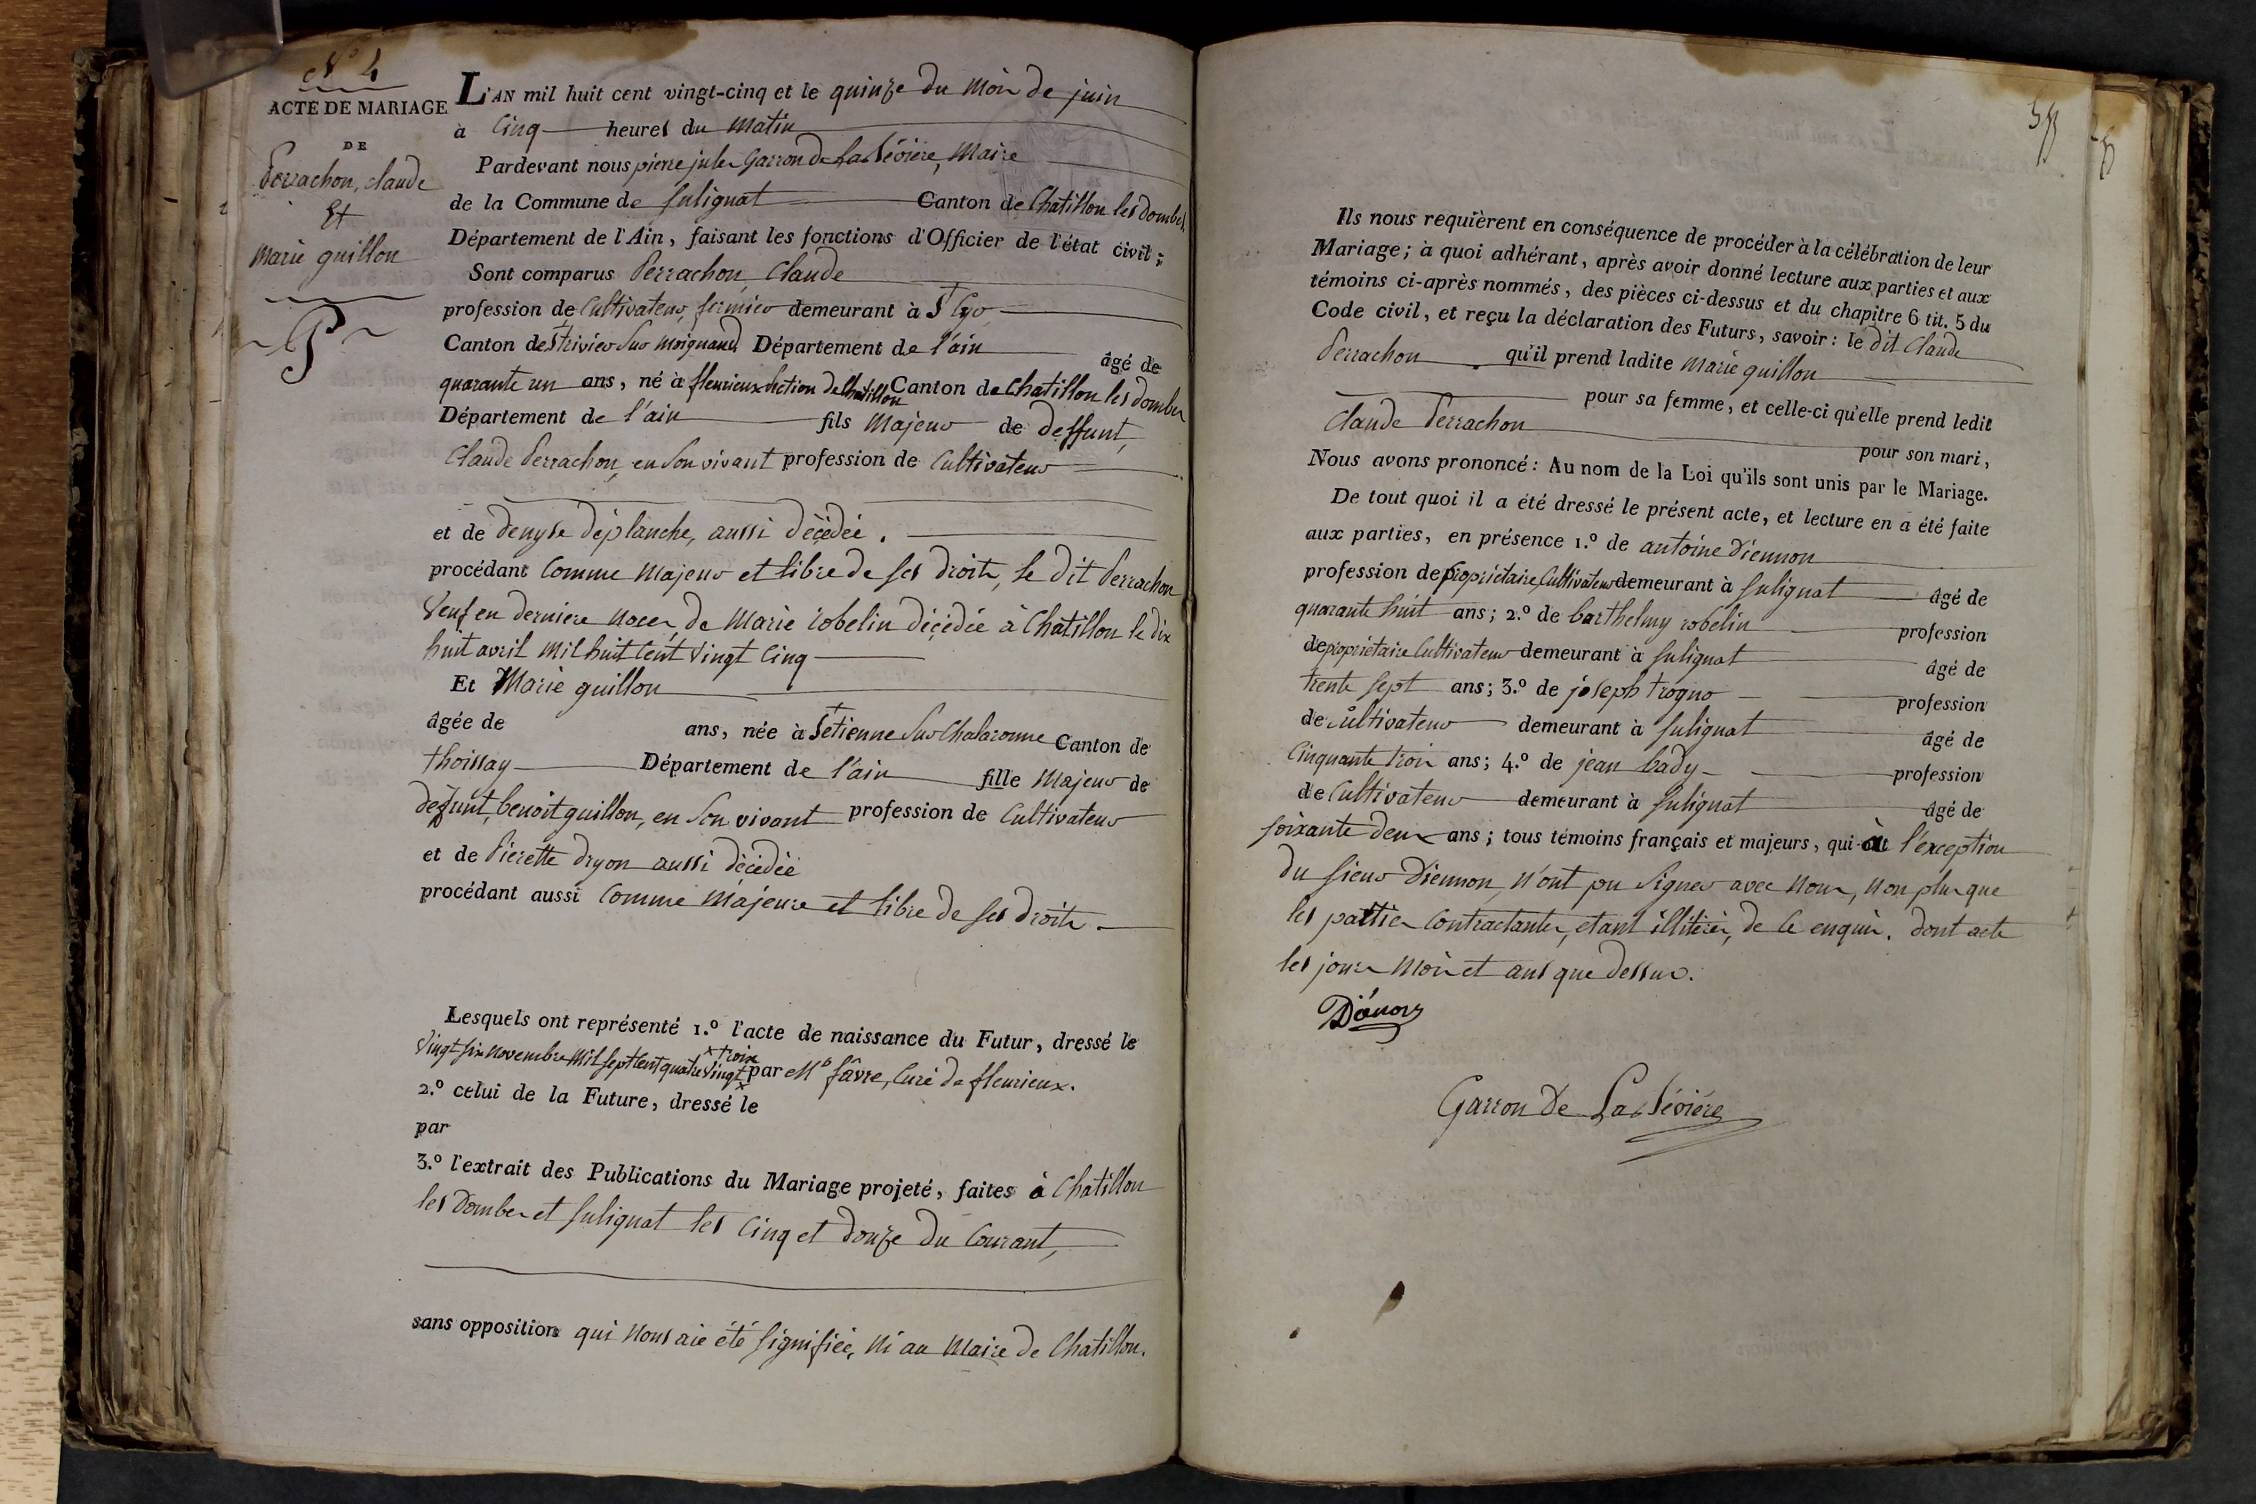 N.o 4
ACTE DE MARIAGE
DE
Perrachon, claude
Et
Marie guillon
L'AN mil huit cent vingt-cinq et le quinze du Mois de juin
à Cinq heures du Matin
Pardevant nous pierre jules Garron de La Bévière, Maire
de la Commune de Sulignat Canton de Chatillon les dombes,
Département de l'Ain, faisant les fonctions d'Officier de l'état civil;
Sont comparus Perrachon, Claude
profession de Cultivateur, fermier demeurant à St Cyr
Canton de St trivier Sur Moignand Département de l'ain âgé de
quarante un ans, né à fleurieux Section de Chatillon Canton de Chatillon les dombes
Département de l'ain fils Majeur de deffunt,
Claude Perrachon, en Son vivant profession de Cultivateur
et de denyse déplanche, aussi décédée.
procédant Comme Majeur et libre de ses droits, le dit Perrachon
Veuf en derniere Noces de Marie robelin décédée à Chatillon le dix
huit avril Mil huit Cent Vingt Cinq
Et Marie guillon
âgée de ans, née à St etienne Sur Chalaronne Canton de
thoissay Département de l'ain fille Majeur de
defunt, benoit guillon, en Son vivant profession de Cultivateur
et de Pierette dryon aussi décédée
procédant aussi Comme Majeure et libre de ses droits.
Lesquels ont représenté 1.º l'acte de naissance du Futur, dressé le
Vingt six Novembre Mil Sept Cent quatre Vingt × trois par Mr fâvre, Curé de fleurieux.
2.º celui de la Future, dressé le
par
3.º l'extrait des Publications du Mariage projeté, faites à Chatillon
les Dombes et Sulignat les Cinq et douze du Courant,
sans opposition qui Nous aie été Signifiée, Ni au Maire de Chatillon.
Ils nous requièrent en conséquence de procéder à la célébration de leur
Mariage; à quoi adhérant, après avoir donné lecture aux parties et aux
témoins ci-après nommés, des pièces ci-dessus et du chapitre 6 tit. 5 du
Code civil, et reçu la déclaration des Futurs, savoir: le dit Claude
Perrachon qu'il prend ladite Marie guillon
pour sa femme, et celle-ci qu'elle prend ledit
Claude Perrachon pour son mari,
Nous avons prononcé: Au nom de la Loi qu'ils sont unis par le Mariage.
De tout quoi il a été dressé le présent acte, et lecture en a été faite
aux parties, en présence 1.º de antoine Diennon
profession de propriétaire, Cultivateur demeurant à Sulignat âgé de
quarante huit ans; 2.º de barthelmy robelin profession
de propriétaire Cultivateur demeurant à Sulignat âgé de
trente Sept ans; 3.º de joseph trogno profession
de Cultivateur demeurant à Sulignat âgé de
Cinquante trois ans; 4.º de jean bady profession
de Cultivateur demeurant à Sulignat âgé de
Soixante deux ans; tous témoins français et majeurs, qui à l'exception
du Sieur Diennon, N'ont pu Signer avec Nous, Non plus que
les parties Contractantes, etant illitérés, de Ce enquis. dont acte
les jours Mois et ans que dessus.
Diénon
Garron de La Bévière